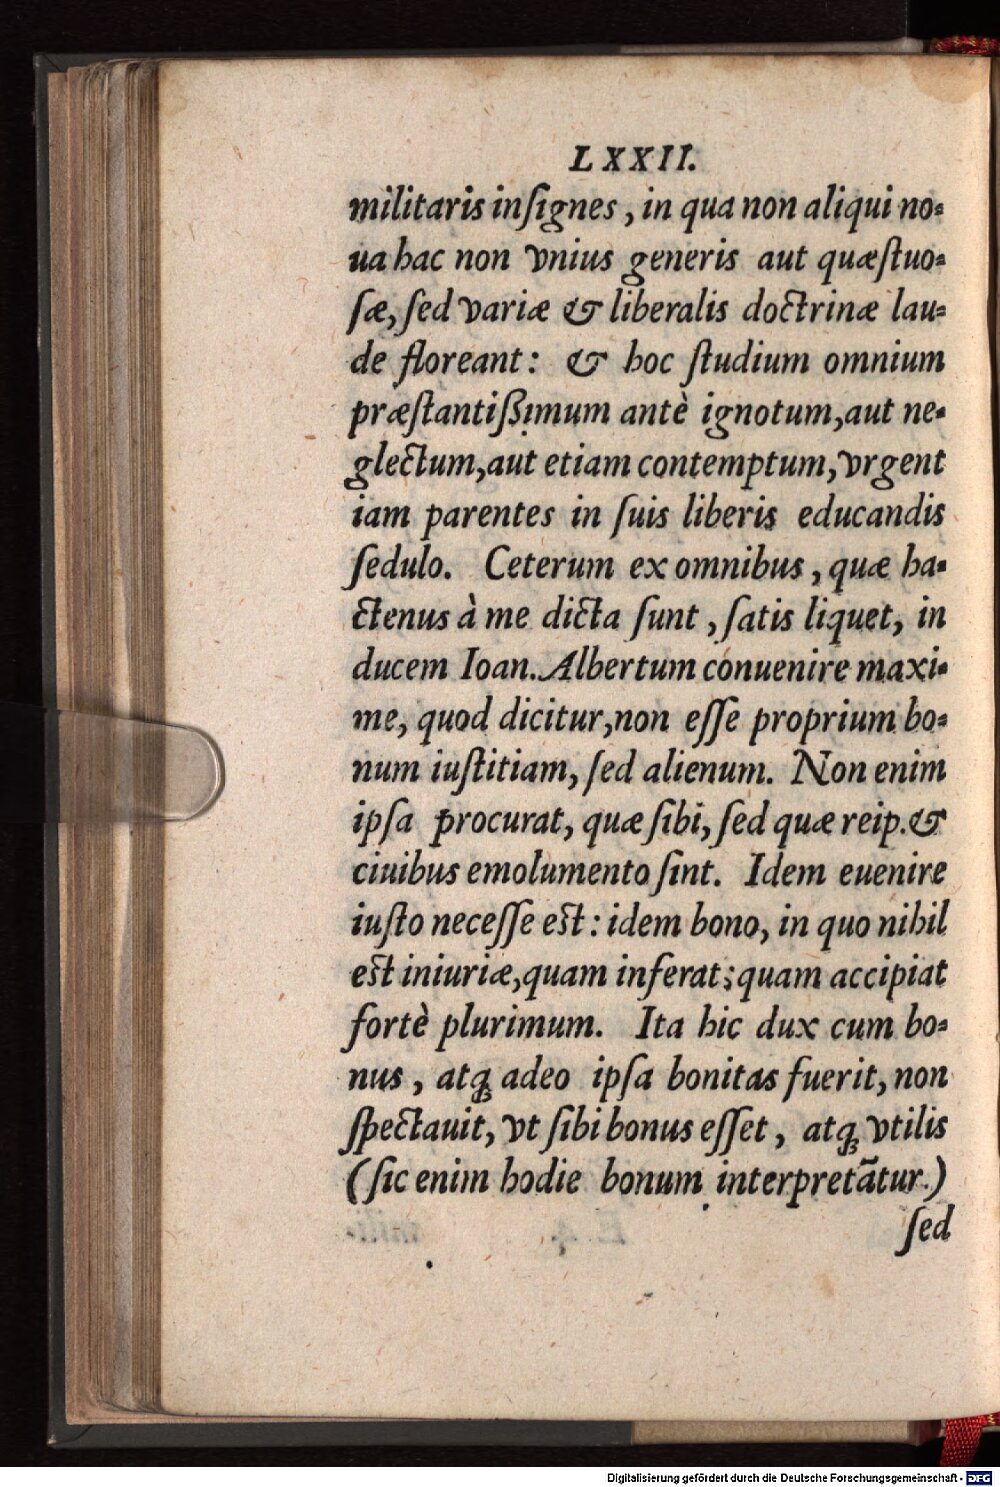 LXXII.
militaris inſignes, in qua non aliqui no-
ua hac non vnius generis aut quæſtuo-
ſæ, ſed variæ & liberalis doctrinæ lau-
de floreant: & hoc ſtudium omnium
præſtantiſſimum antè ignotum, aut ne-
glectum, aut etiam contemptum, vrgent
iam parentes in ſuis liberis educandis
ſedulo. Ceterum ex omnibus, quæ ha-
ctenus à me dicta ſunt, ſatis liquet, in
ducem Ioan. Albertum conuenire maxi-
me, quod dicitur, non eſſe proprium bo-
num iuſtitiam, ſed alienum. Non enim
ipſa procurat, quæ ſibi, ſed quæ reip. &
ciuibus emolumento ſint. Idem euenire
iuſto neceſſe est: idem bono, in quo nihil
est iniuriæ, quam inferat; quam accipiat
fortè plurimum. Ita hic dux cum bo-
nus, atꝗ adeo ipſa bonitas fuerit, non
ſpectauit, vt ſibi bonus eſſet, atꝗ vtilis
(ſic enim hodie bonum interpretātur.)
ſed
Digitalisierung gefördert durch die Deutsche Forschungsgemeinschaft - DFG